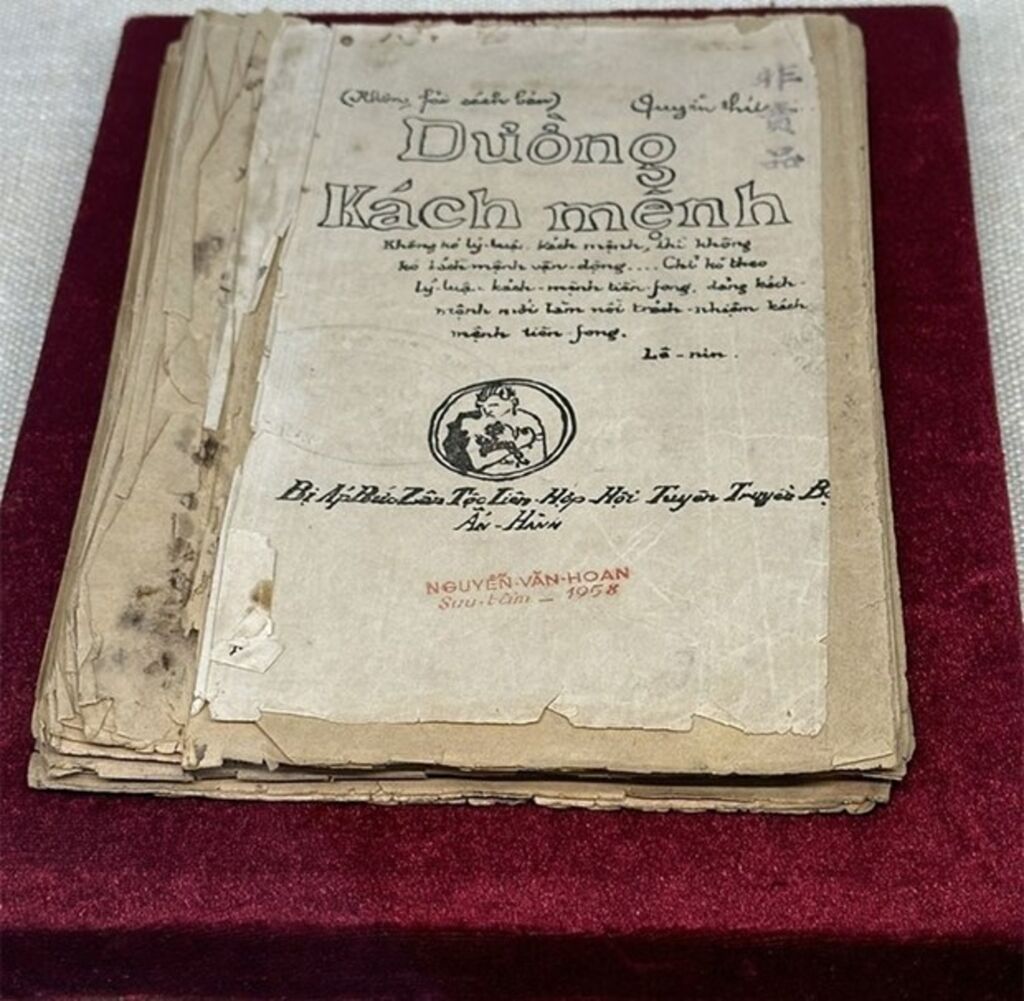 (Không fải sách bán) Quyển thứ
非賣品
Đường
Kách mệnh
Không kó lý-luận kách mệnh, thì không
kó kách mệnh vận-động.... Chỉ kó theo
lý-luận kách-mệnh tiền-fong, đảng kách-
mệnh mới làm nổi trách-nhiệm kách
mệnh tiền-fong.
Lê-nin.
Bị Áp Bức Zân Tộc Liên-Hợp Hội Tuyên Truyền Bộ
Ấn-Hành
NGUYỄN-VĂN-HOAN
Sưu-tầm - 1958